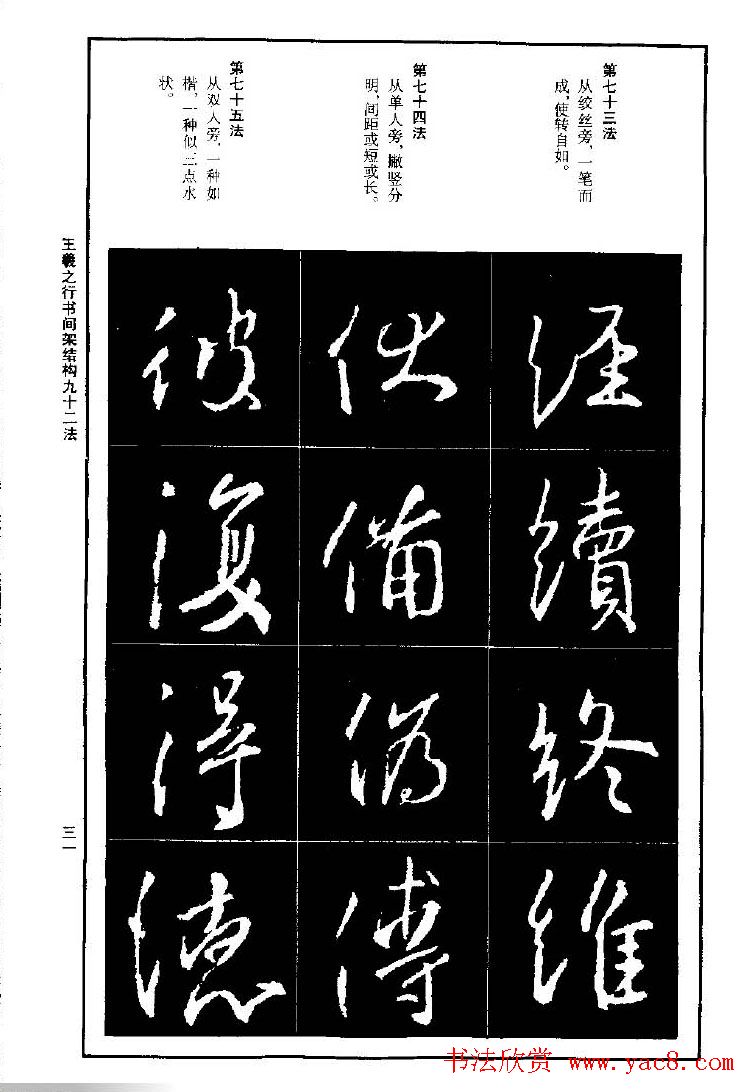 第七十三法
从绞丝旁，一笔而
成，使转自如。
第七十四法
从单人旁，撇竖分
明，间距或短或长。
第七十五法
从双人旁，一种如
楷，一种似三点水
状。
經
續
終
維
伏
備
偽
傅
彼
復
得
德
王羲之行书间架结构九十二法
三一
书法欣赏 www.yac8.com